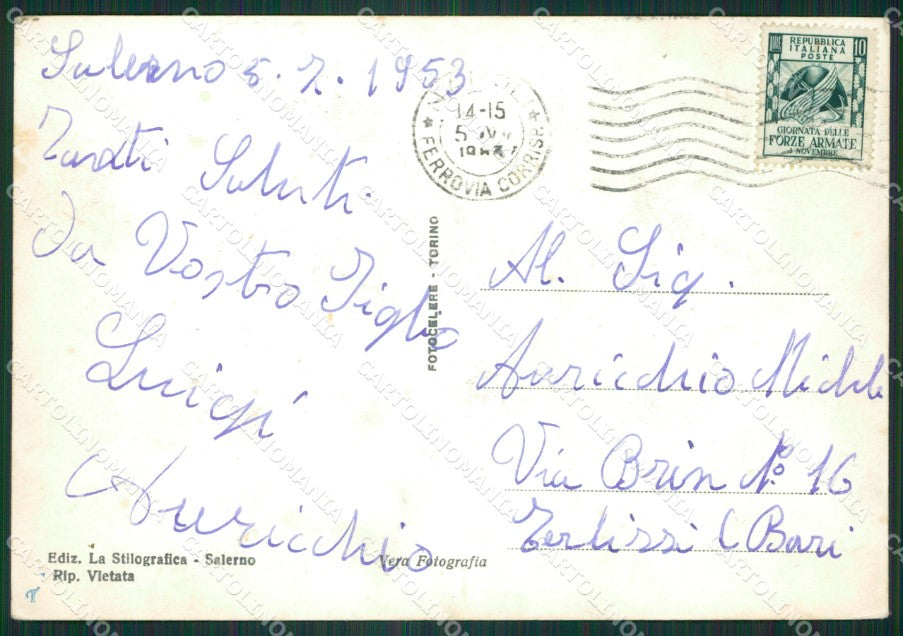 Salerno 5.7.1953
Saluti
Da Vostro Figlio
Luigi
Auricchio
14-15
5
FERROVIA CORRISP
REPUBBLICA
ITALIANA
POSTE
LIRE 10
GIORNATA DELLE
FORZE ARMATE
4 NOVEMBRE
FOTOCELERE - TORINO
Al. Sig.
Auricchio Michele
Via Brin N.º 16
Terlizzi (Bari
Ediz. La Stilografica - Salerno
Rip. Vietata
Vera Fotografia
CARTOLINOMANIA